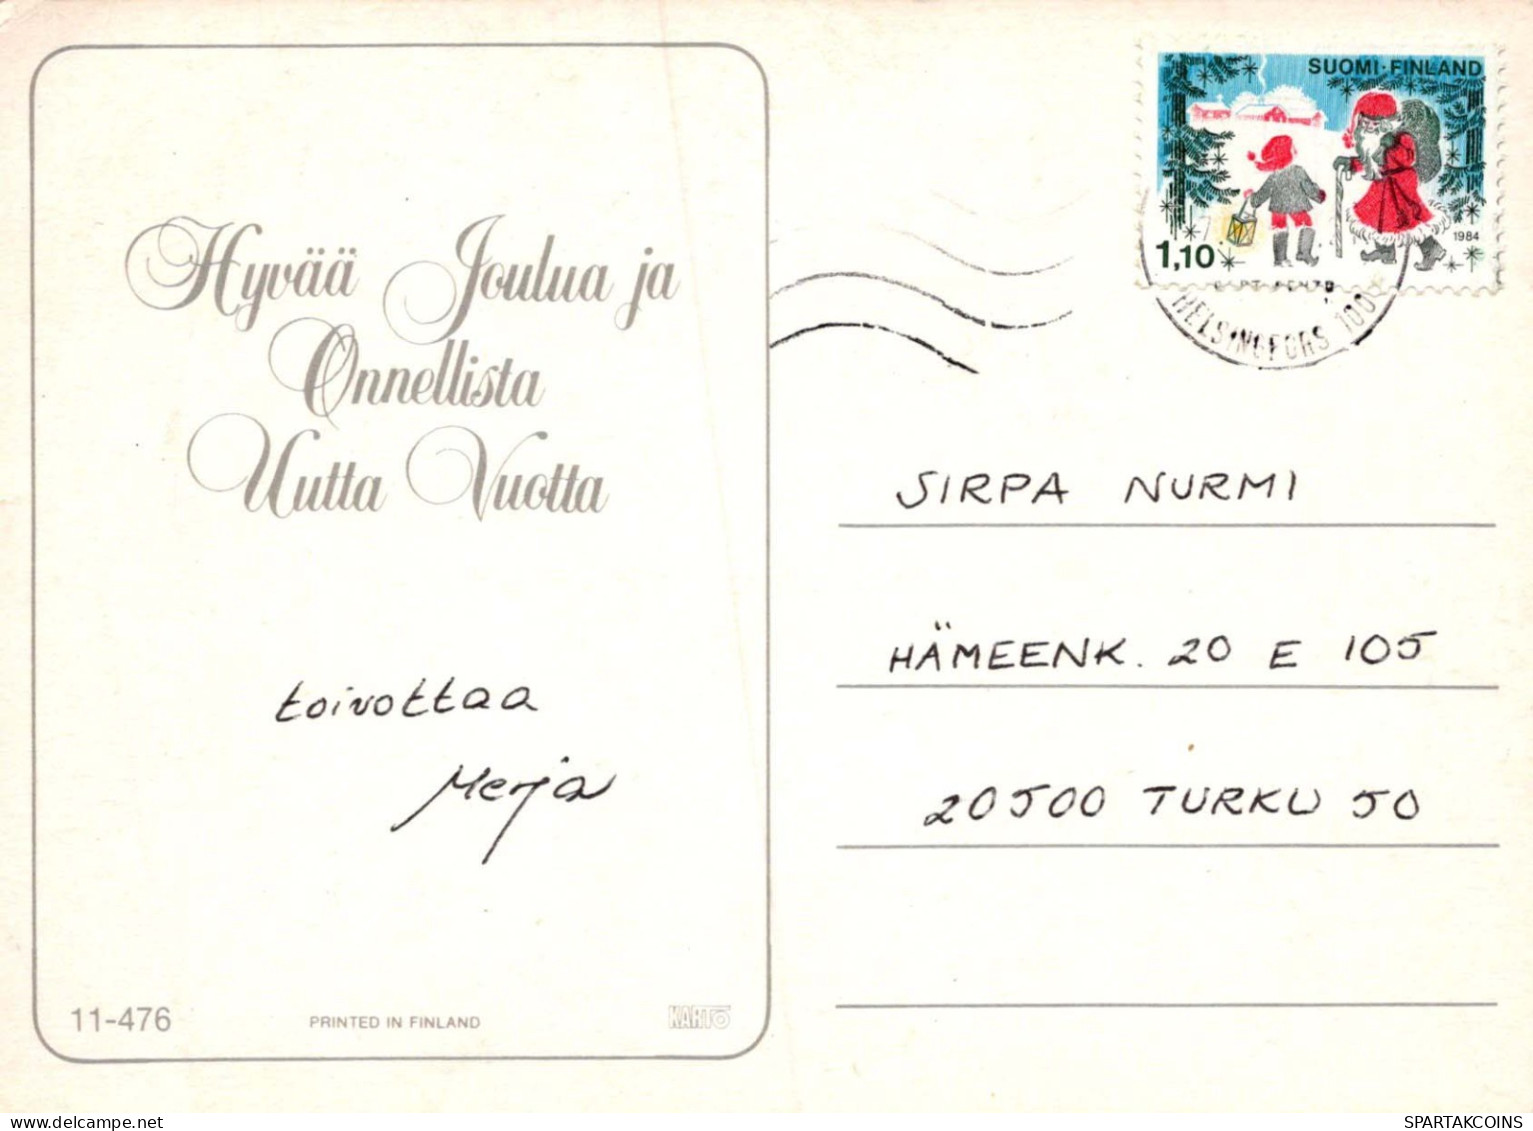 Hyvää Joulua ja
Onnellista
Uutta Vuotta
toivottaa
Merja
11-476
PRINTED IN FINLAND
KARTO
SUOMI·FINLAND
1984
1,10
HELSINGFORS 100
SIRPA NURMI
HÄMEENK. 20 E 105
20500 TURKU 50
SPARTAKCOINS